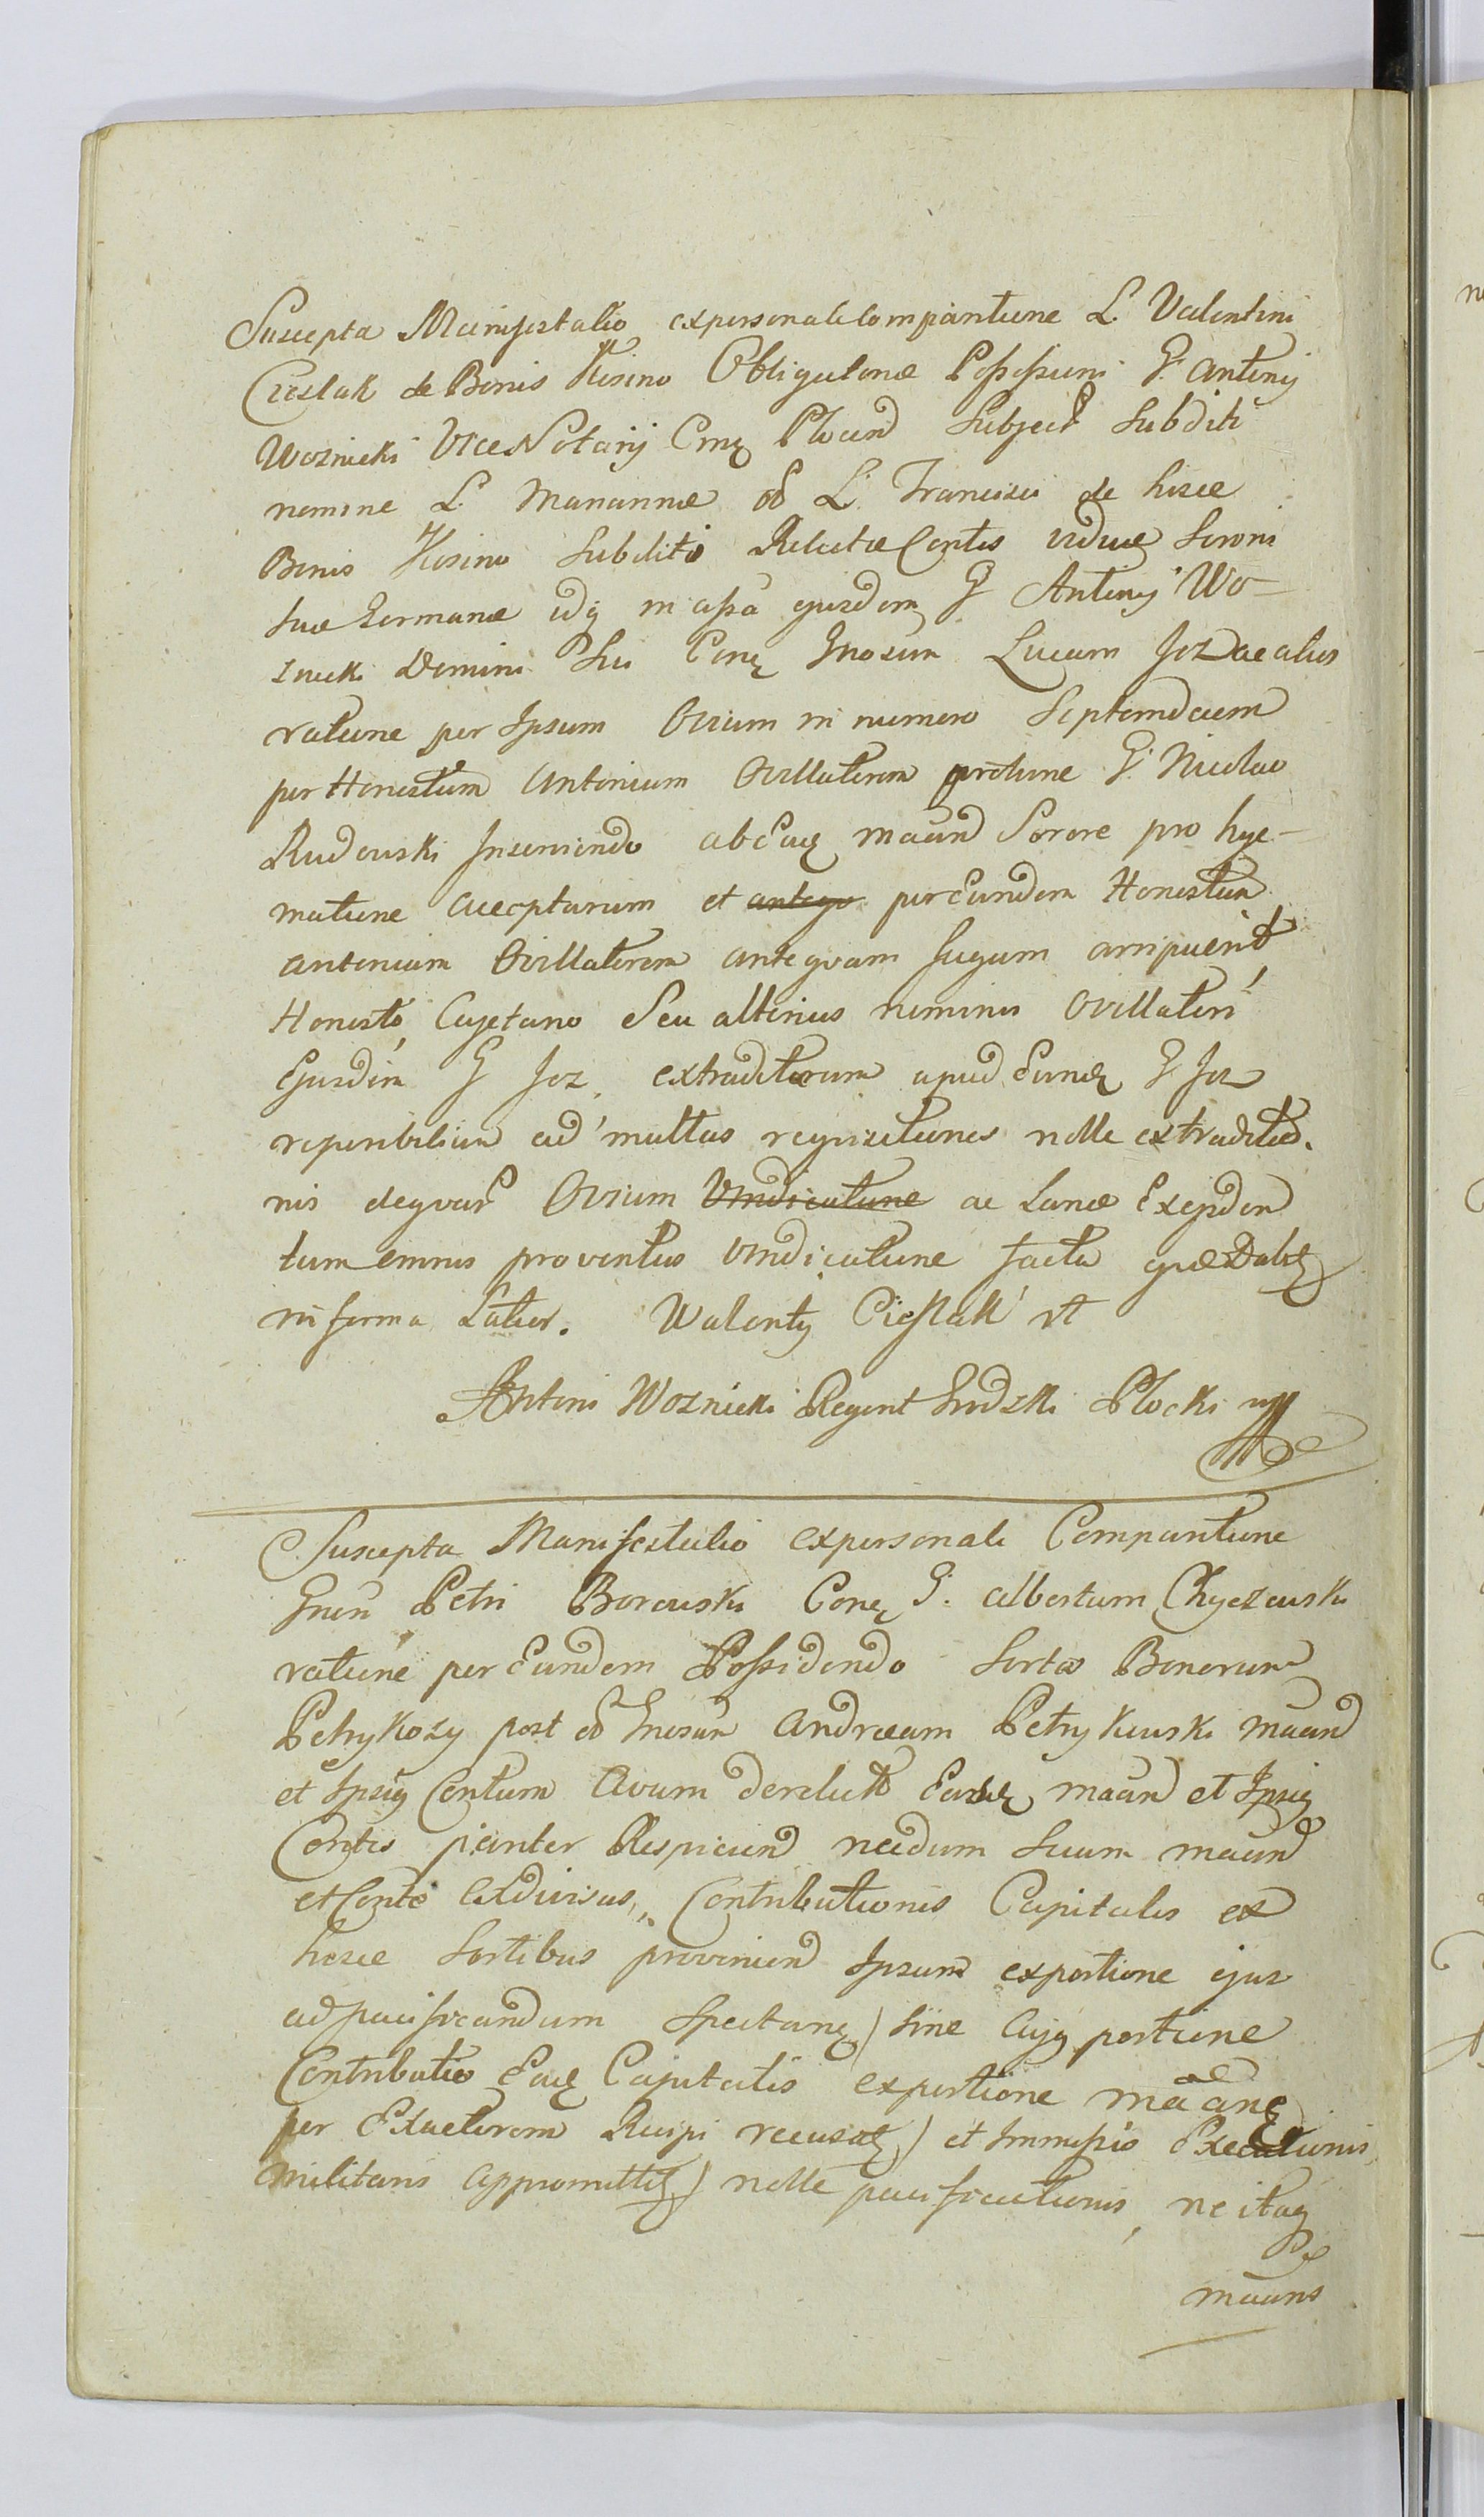 Suscepta Manifestatio expersonali Compantione L. Valentini
Cieslak de Bonis Kosino Obligatoriæ Possessioni G. Antonij
Woznicki Vice Notarij Plocen Subject Subditi
nomine L. Mariannæ ob L. Francisci de hisce
Bonis Kosino Subditi Relictæ Contis viduæ Sorori
suæ Germanæ idq in assa ejusdem G Antonij Wo-
znicki Domini Sui Gnosum Lucam Joz ac alios
ratione per Ipsum Ovium in numero Septemdecem
per Honestum Antonium Ovillatorem protunc G. Nicolao
Rudowski Inserviendo ab Eaq maand Sorore pro hye-
matione acceptarum et antego per Eundem Honestum
Antonium Ovillatorem antequam fugam arripuerit
Honesto Cajetano Seu alterius nominis Ovillatori
Ejusdem G Joz extraditorum apud G Joz
reperibilium ad multas requisitiones nolle extraditio-
nis deqvar Ovium Vindicatione ac Lanæ Exejsdem
tum omnis proventus vindicatione facta
in forma Latior. Walenty Cieslak
Antoni Woznicki Regent Grodzki Plocki mp
Suscepta Manifestatio expersonali Compantione
Gnen Petri Borowski G. Albertum Chyczewski
ratione per Eundem Possidendo Sortes Bonorum
Petrykozy post ob Gnosum Andræam Petrykowski maand
et Ipsiq Contum Avum derelict maand et Ipsiq
Contis pariter Respiciend necdum Suum maand
et Conte exdivisas, Contributionis Capitalis ex
hisce Sortibus proveniend Ipsum exportione ejus
ad pacificandum sine Cujq portione
Contributio Eaq Capitalis exportione maane
per Exactorem Recipi recusat) et Immissio Executionis
Militaris appromittit) nolle pacificationis, ne itaq
Ps
maans